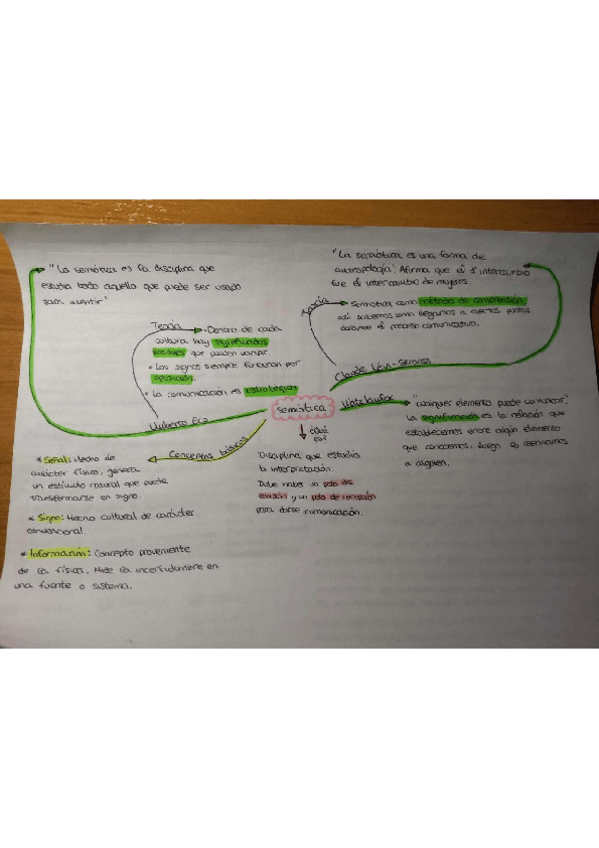 "La semiótica es la disciplina que
estudia todo aquello que puede ser usado
para mentir"
Teoría
Dentro de cada
cultura hay significados
que pueden variar.
• Los signos siempre funcionan por
oposición.
• La comunicación es estratégica
Umberto Eco
"La semiótica es una forma de
antropología". Afirma que el 1º intercambio
fue el intercambio de mujeres.
Teoría
Semiótica como método de comprensión,
así sabemos como llegamos a ciertos puntos
durante el proceso comunicativo.
Claude Lévi-Strauss
semiótica
Watzlawick
"cualquier elemento puede comunicar".
La significación es la relación que
establecemos entre algún elemento
que conocemos, luego lo
a alguien.
¿Qué
es?
Disciplina que estudia
la interpretación.
Debe haber un polo de
emisión y un polo de recepción
para darse comunicación.
Conceptos básicos
* Señal: Hecho de
carácter físico, genera
un estímulo natural que puede
transformarse en signo.
* Signo: Hecho cultural de carácter
convencional.
* Información: Concepto proveniente
de la física, Mide la incertidumbre en
una fuente o sistema.